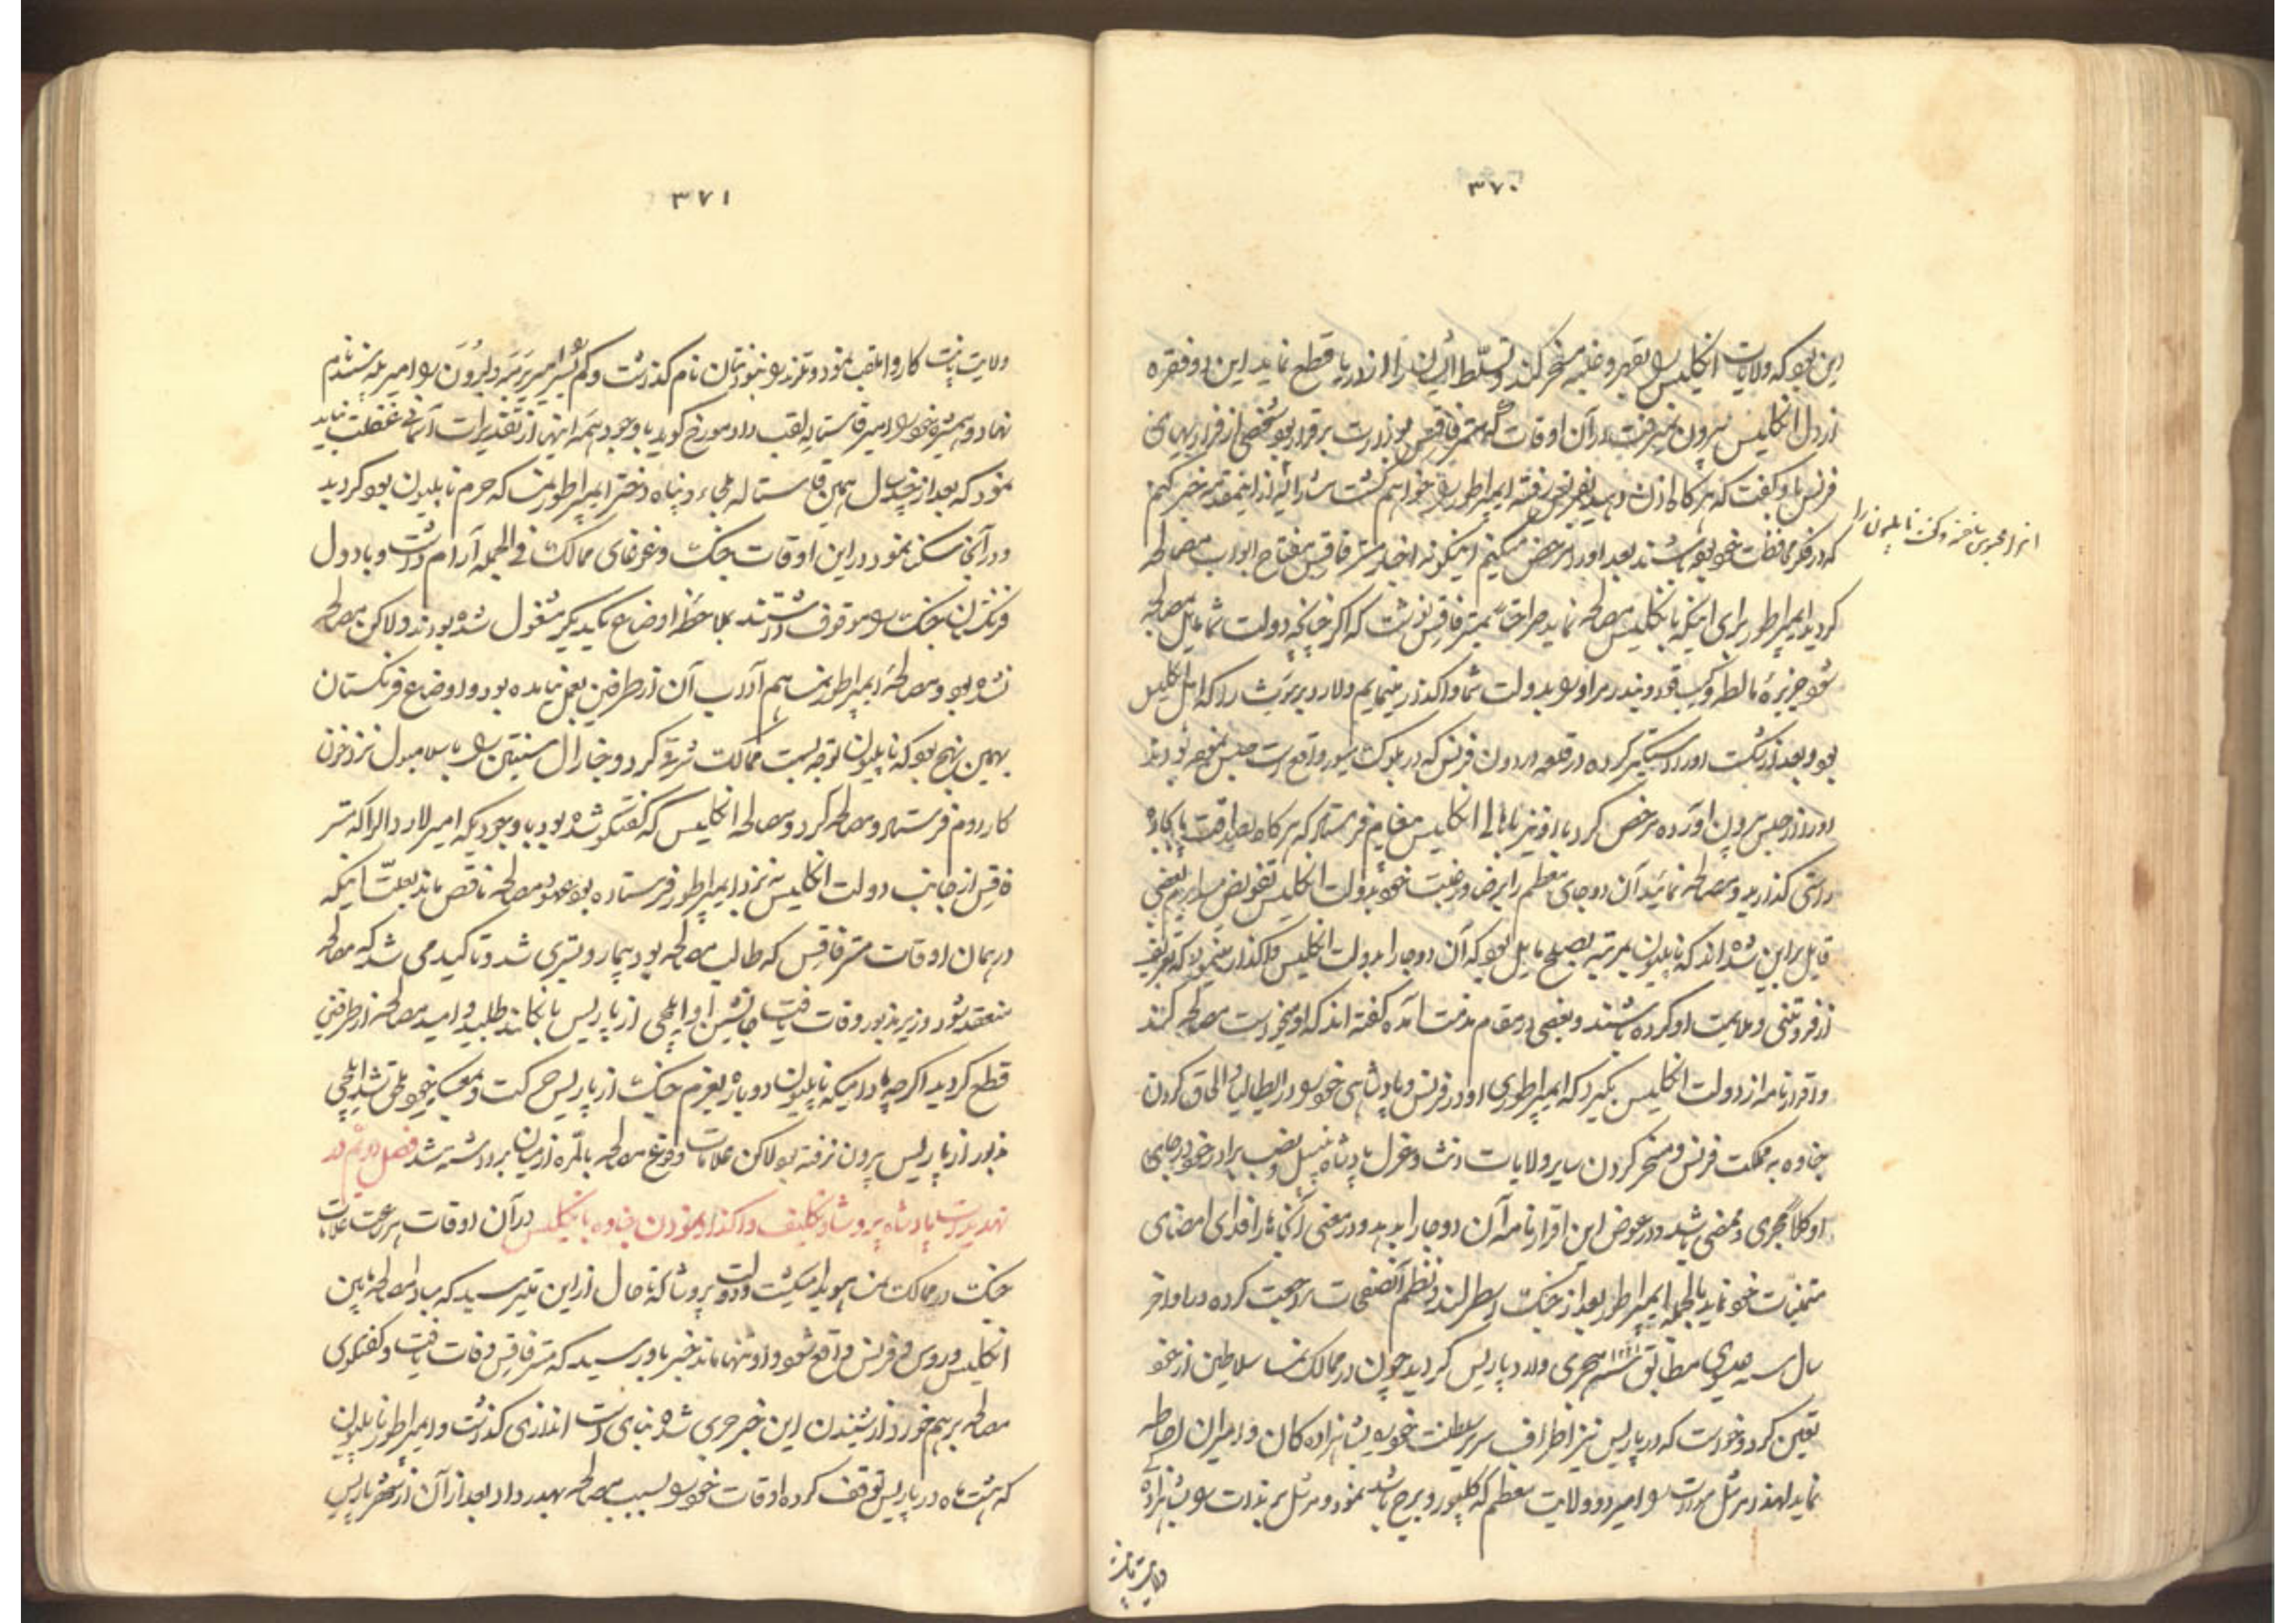 ۳۷۰
این بود که ولایات انگلیس را بقهر و غلبه مسخر کند و تسلط ایشان را از دریا قطع نماید این دو فقره
از دل انگلیس بیرون نمیرفت در آن اوقات که مستر فاقس بوزارت برقرار بود شخصی از فراریهای
فرنس باو گفت که هرگاه اذن دهید بفرنس رفته ایمپراطور را خواهم کشت مشارالیه از اینمقدمه خبر کنیم
انرا محبوس ساخته و گفت ناپلیون را
که در فکر محافظت خود بوده باشند بعد او را مرخص میکنیم اینگونه اخبار مستر فاقس مفتاح ابواب مصالحه
گردید ایمپراطور برای اینکه با انگلیس مصالحه نماید صراحتاً بمستر فاقس نوشت که اگر چنانچه دولت شما مایل مصالحه
شود جزیرهٔ مالطه و کیپ قود و بندر هراور را بدولت شما واگذار مینمایم و لارد یرموث را که اهل انگلیس
بود و بعد از شکست او را دستگیر کرده در قلعه وردون فرنس که در بلوک میور واقع است حبس نموده بودند
او را از حبس بیرون آورده مرخص کرد باو نیز باهالی انگلیس پیغام فرستاد که هرگاه بصداقت پا بجادهٔ
راستی گذارید و مصالحه نمائید آن دو جای معظم را برضا و رغبت خود بدولت انگلیس تفویض میداریم بعضی
قایل بر این شده‌اند که ناپلیون بمرتبه بصلح مایل بود که آن دو جا را بدولت انگلیس واگذار مینمود که تعریف
از فروتنی و ملایمت او کرده باشند و بعضی در مقام مذمت آمده گفته‌اند که او میخواست مصالحه کند
و اقرارنامه از دولت انگلیس بگیرد که ایمپراطوری او در فرنس و پادشاهی خود را در ایطالیا و الحاق کردن
جناوه به مملکت فرنس و مسخر کردن سایر ولایات دشت و عزل پادشاه نیپل و نصب برادر خود در جای
او کلاً مجری و ممضی باشد در عوض این اقرارنامه آن دو جا را بدهد و در معنی آنجاها را فدای امضای
متمنیات خود نماید بالجمله ایمپراطور بعد از جنک اوسطرلند و نظم آنصفحات مراجعت کرده در اواخر
سال عیسوی مطابق ۱۲۲۱ هجری وارد پاریس گردید چون در ممالک نمسا سلاطین از خود
تعیین کرد و خواست که در پاریس نیز اطراف سریر سلطنت خود را بشاهزادگان و امیران احاطه
نماید لهذا مرشل مورات را امیر دو ولایت معظم که کلیور و برج باشد نمود و مرشل برندات را بشاهزادهٔ
ولایت پانت
۳۷۱
ولایت پانت کاروا ملقب نمود و تلرند را بنونتان نام گذاشت و حکم شد امیر پرمه و لبرون را امیر پلیسندم
نهاد و همشیره خود را امیر قاستاله لقب داد مورخ گوید با وجود همه اینها از تقدیرات آسمانی غفلت نباید
نمود که بعد از چند سال همین قاستاله ملجاء و پناه دختر ایمپراطور نمسا که حرم ناپلیون بود گردید
و در آنجا سکنا نمود در این اوقات جنک و غوغای ممالک فی الجمله آرام داشت و با دول
فرنکستان جنک را موقوف داشتند بملاحظه اوضاع یکدیگر مشغول شده بودند و لاکن مصالحه
نشده بود و مصالحهٔ ایمپراطور نمسا هم آداب آن از طرفین بعمل نیامده بود و اوضاع فرنکستان
بهمین نهج بود که ناپلیون توجه بسمت ممالک شرق کرد و جنارال سبستین را باسلامبول نزد خون
کار روم فرستاد و مصالحه کرد و مصالحه انگلیس که گفتگو شده بود با وجودیکه امیر لاردال را که مستر
فاقس از جانب دولت انگلیس به نزد ایمپراطور فرستاده بود عهود مصالحه ناقص ماند بعلت اینکه
در همان اوقات مستر فاقس که طالب مصالحه بود بیمار و بستری شد و تاکید می شد که مصالحه
منعقد شود وزیر مذبور وفات یافت جانشین او ایلچی از پاریس بانکلند طلبید و امید مصالحه از طرفین
قطع گردید اگرچه مادامیکه ناپلیون دوباره بعزم جنک از پاریس حرکت و بمعسکر خود ملحق نشد ایلچی
مزبور از پاریس بیرون نرفته بود لاکن علامات وقوع مصالحه بالمره از میان برداشته شد فصل دوم در
تهدیدات پادشاه پروشا و تکلیف واگذار نمودن جناوه بانگلیس در آن اوقات بسرعت علامات
جنک در ممالک نمسا هویدا میگشت و دولت پروشا که تا حال از این میترسید که مبادا مصالحه مابین
انگلیس و روس و فرنس واقع شود و او تنها ماند خبر باو رسید که مستر فاقس وفات یافت و گفتگوی
مصالحه برهم خورد از شنیدن این خبر جری شده بنای دست اندازی گذاشت و ایمپراطور ناپلیون
که هشت ماه در پاریس توقف کرده اوقات خود را بسبب مصالحه بهدر داد بعد از آن از شهر پاریس